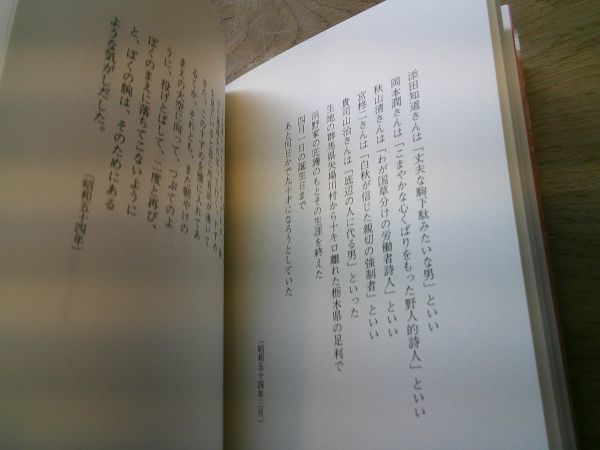 添田知道さんは「丈夫な駒下駄みたいな男」といい
岡本潤さんは「こまやかな心くばりをもった野人的詩人」といい
秋山清さんは「わが国草分けの労働者詩人」といい
宮柊二さんは「白秋が信じた親切の強制者」といい
貴司山治さんは「底辺の人に代る男」といった
生地の群馬県矢場川村から十キロ離れた栃木県の足利で
浜野家の庇護のもとその生涯を終えた
四月一日の誕生日まで
あと何日かで九十才になろうとしていた
（昭和五十四年三月）
るてか、それとも、また朝やけの
まえの大空に向って、つぶてのよ
うに、投げとばして、二度と再び、
ぼくのまえに落ちてこないように
と、ぼくの腕は、そのためにある
ような気がしだした。
（昭和五十四年）